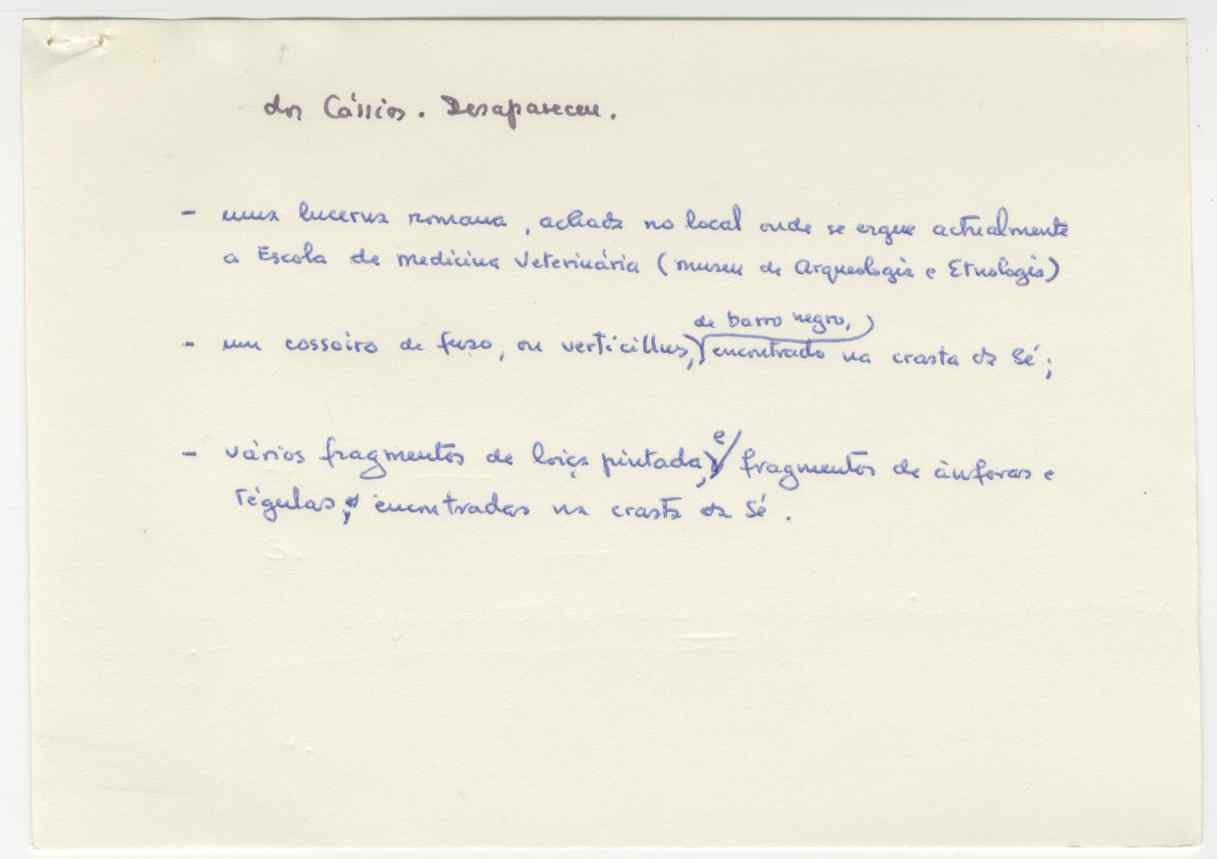 dos Cássios. Desapareceu.
- uma lucerna romana, achada no local onde se ergue actualmente
a Escola de Medicina Veterinária (Museu de Arqueologia e Etnologia)
de barro negro,
- um cossoiro de fuso, ou verticillus, encontrado na crasta da Sé;
e
- vários fragmentos de loiça pintada, fragmentos de ânforas e
tégulas, encontradas na crasta da Sé.